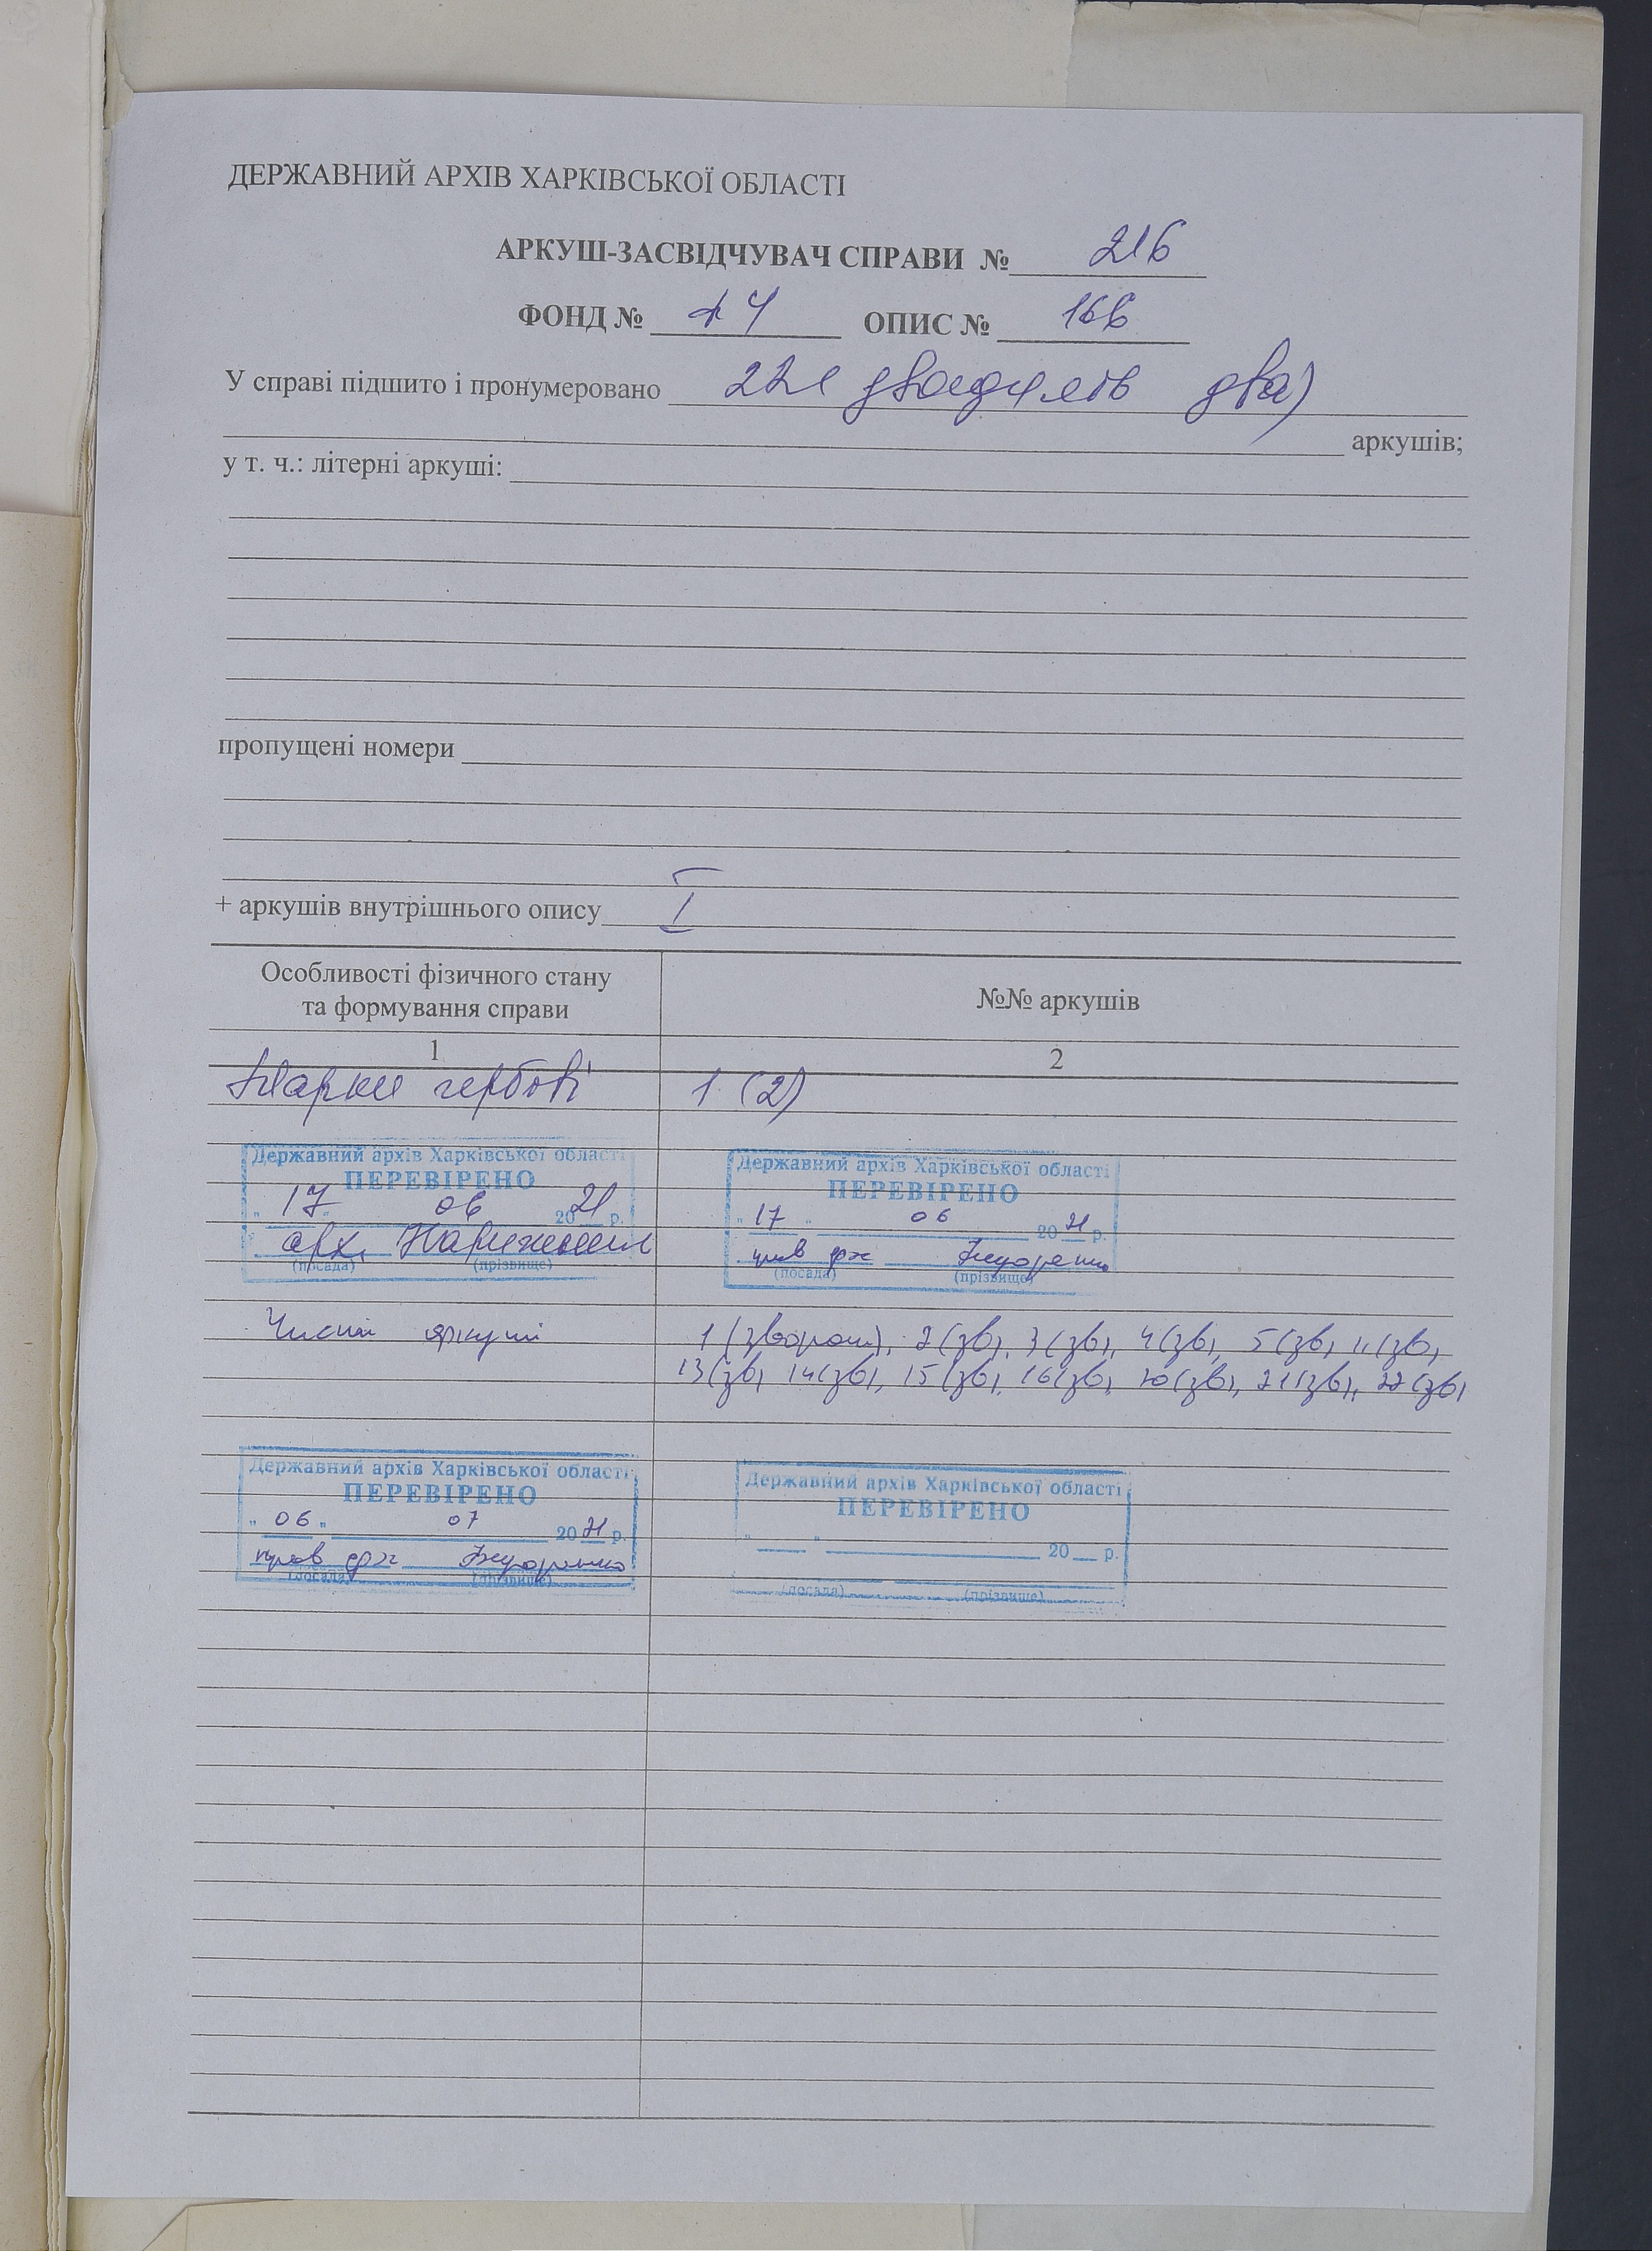 ДЕРЖАВНИЙ АРХІВ ХАРКІВСЬКОЇ ОБЛАСТІ
АРКУШ-ЗАСВІДЧУВАЧ СПРАВИ № 216
ФОНД № 14 ОПИС № 166
У справі підшито і пронумеровано 22 ( двадцять два)
аркушів;
у т. ч.: літерні аркуші:
пропущені номери
+ аркушів внутрішнього опису I
Особливості фізичного стану
та формування справи
№№ аркушів
1
2
Марки гербові 1 (2)
Державний архів Харківської області
ПЕРЕВІРЕНО
" 17 " 06 2021 р.
арх.
(посада) (прізвище)
Державний архів Харківської області
ПЕРЕВІРЕНО
" 17 " 06 2021 р.
(посада) (прізвище)
Чисті аркуші 1 (зворот), 2 (зв), 3 (зв), 4 (зв), 5 (зв), 11 (зв),
13 (зв), 14 (зв), 15 (зв), 16 (зв), 20 (зв), 21 (зв), 22 (зв)
Державний архів Харківської області
ПЕРЕВІРЕНО
" 06 " 07 2021 р.
(посада) (прізвище)
Державний архів Харківської області
ПЕРЕВІРЕНО
" " 20 р.
(посада) (прізвище)